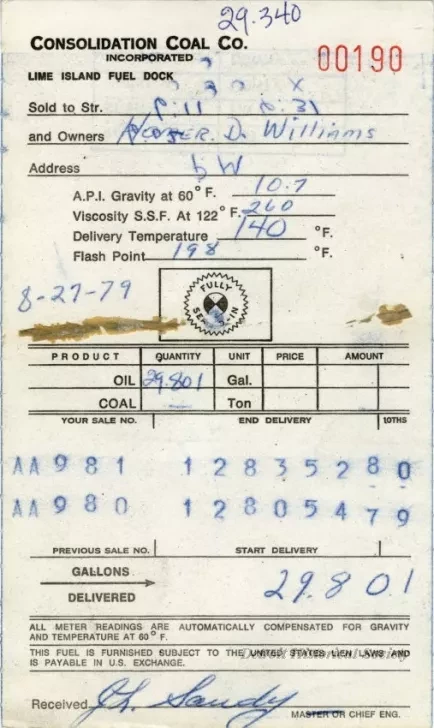 29.340
CONSOLIDATION COAL CO.
INCORPORATED
00190
LIME ISLAND FUEL DOCK
Sold to Str.
and Owners Homer D. Williams
Address
A.P.I. Gravity at 60° F. 10.7
Viscosity S.S.F. At 122° F. 260
Delivery Temperature 140 °F.
Flash Point 198 °F.
8-27-79
FULLY
PRODUCT QUANTITY UNIT PRICE AMOUNT
OIL 29.801 Gal.
COAL — Ton
YOUR SALE NO. END DELIVERY 10THS
AA981 12835280
AA980 12805479
PREVIOUS SALE NO. START DELIVERY
GALLONS
DELIVERED
29.801
ALL METER READINGS ARE AUTOMATICALLY COMPENSATED FOR GRAVITY
AND TEMPERATURE AT 60° F.
THIS FUEL IS FURNISHED SUBJECT TO THE UNITED STATES LIEN LAWS AND
IS PAYABLE IN U.S. EXCHANGE.
Received
MASTER OR CHIEF ENG.